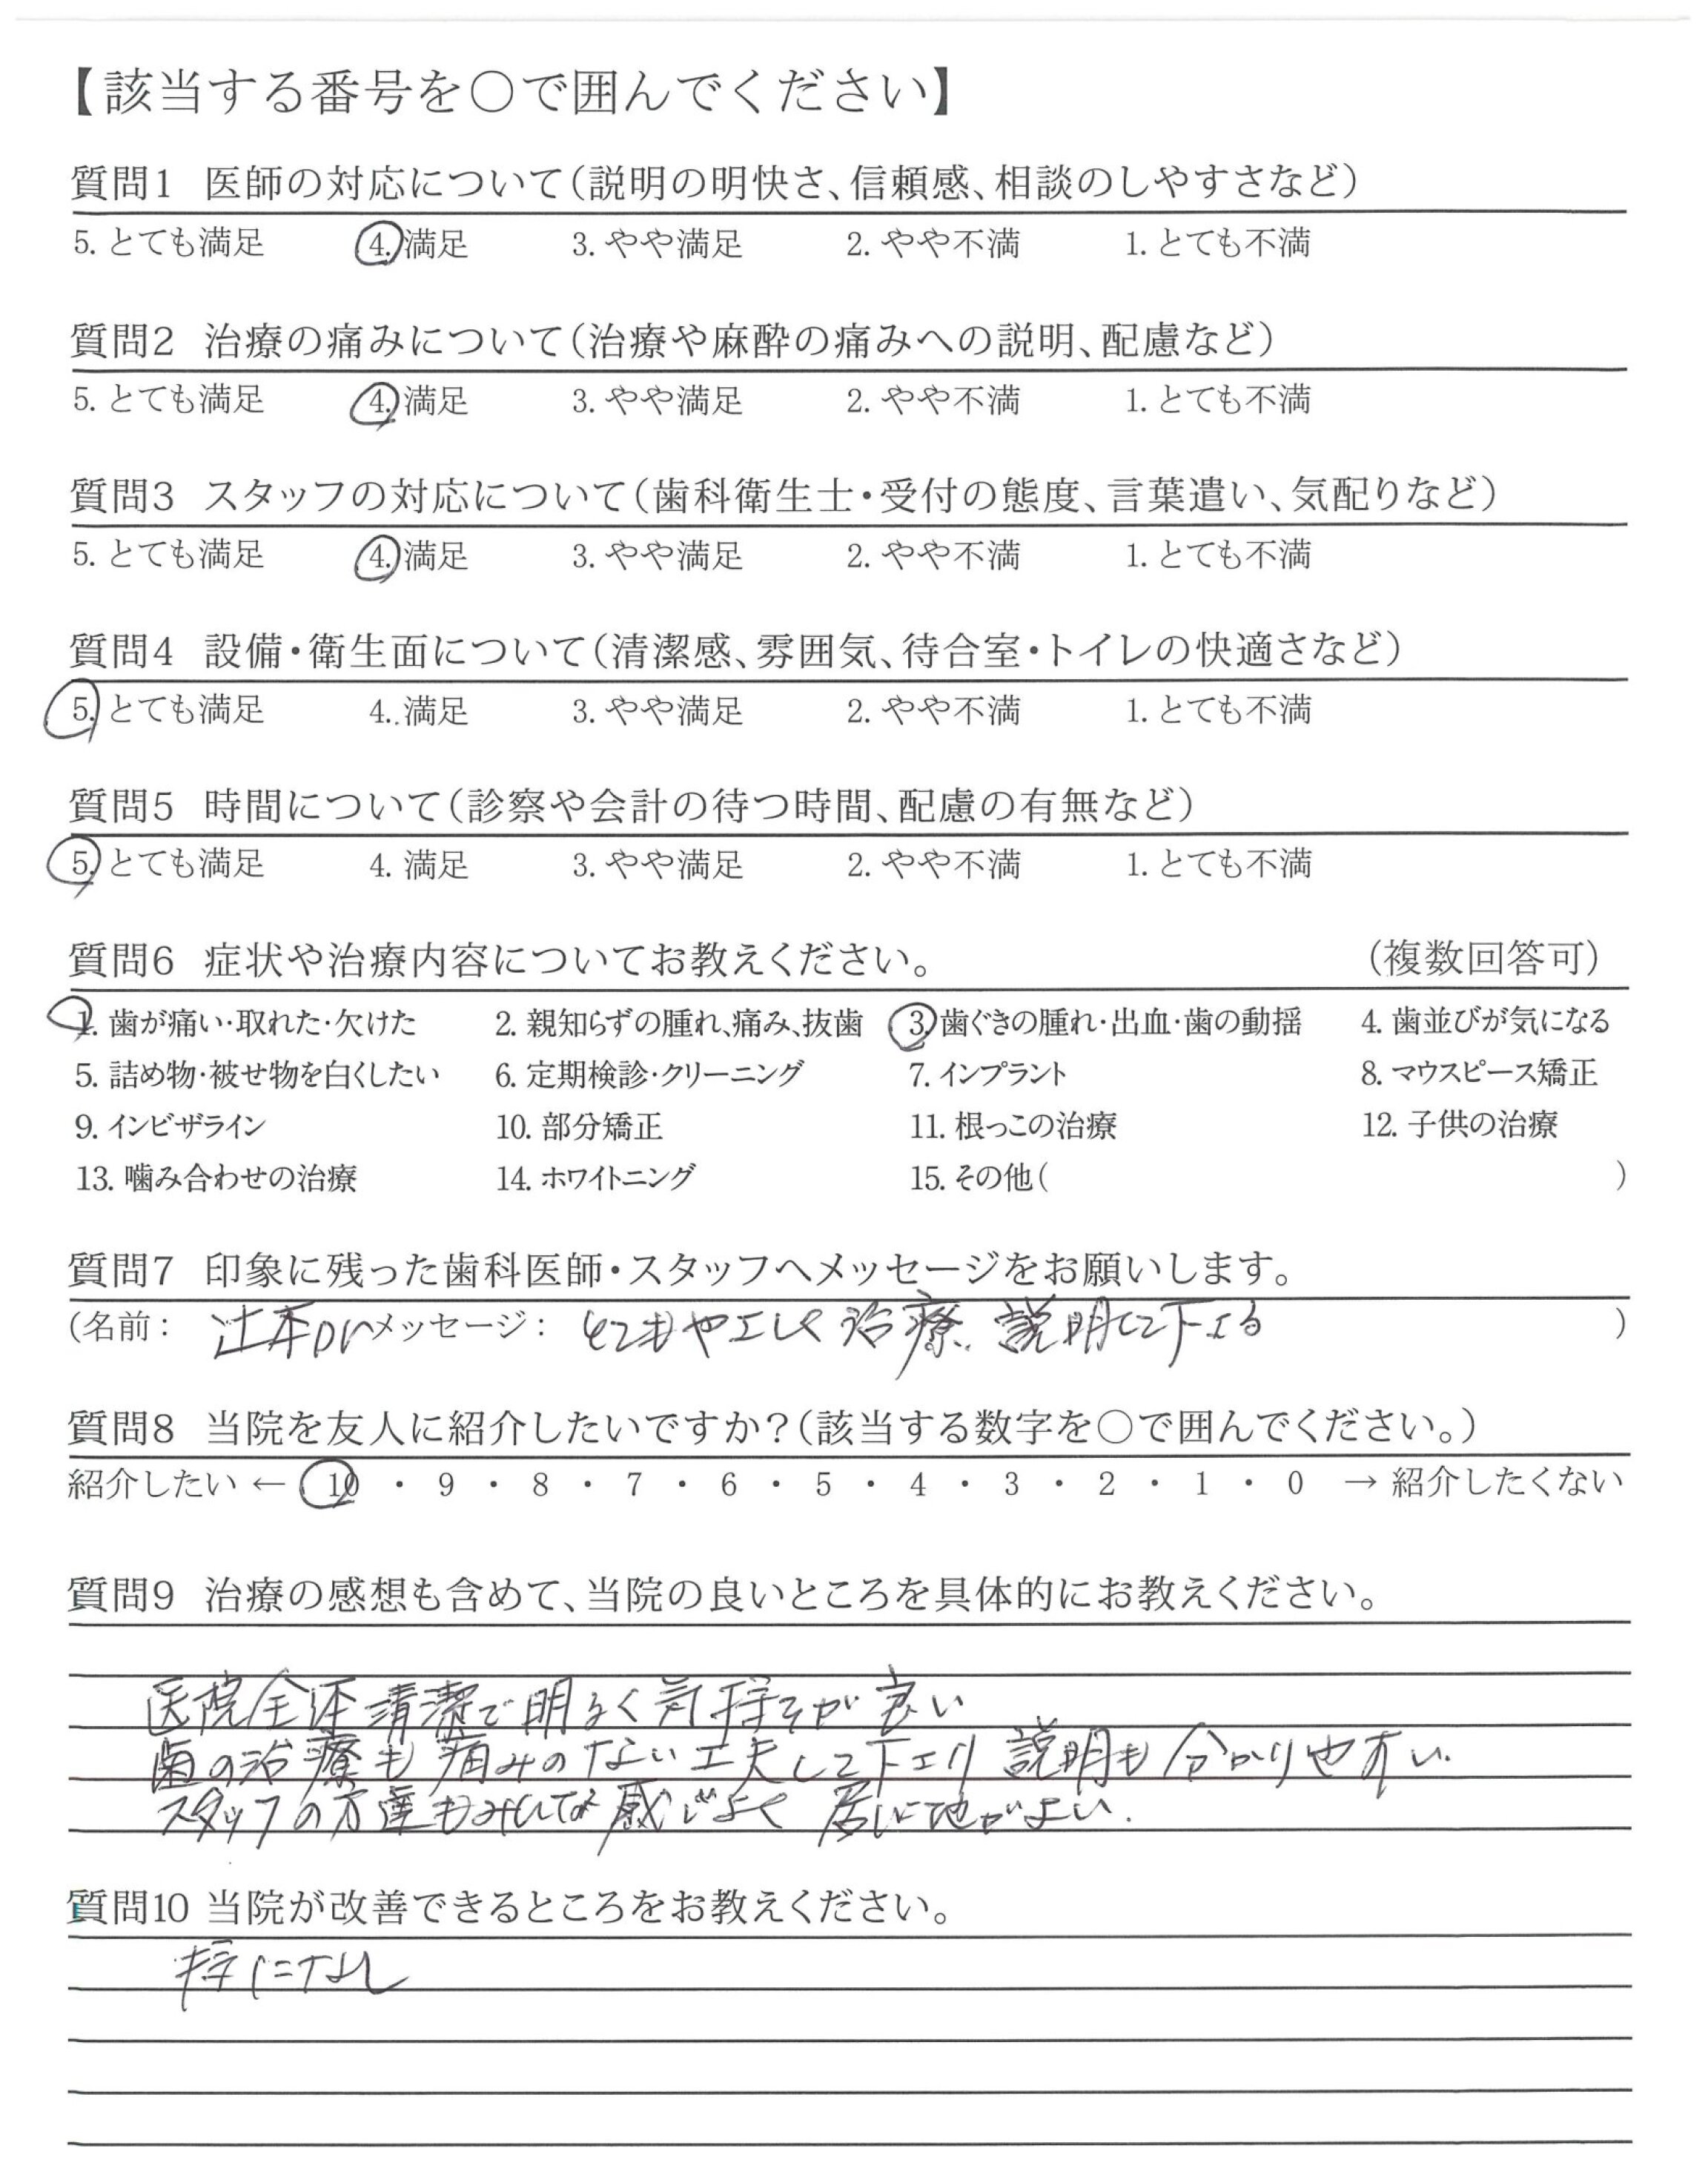 【該当する番号を○で囲んでください】
質問1 医師の対応について(説明の明快さ、信頼感、相談のしやすさなど)
5. とても満足 4. 満足 3. やや満足 2. やや不満 1. とても不満
質問2 治療の痛みについて(治療や麻酔の痛みへの説明、配慮など)
5. とても満足 4. 満足 3. やや満足 2. やや不満 1. とても不満
質問3 スタッフの対応について(歯科衛生士・受付の態度、言葉遣い、気配りなど)
5. とても満足 4. 満足 3. やや満足 2. やや不満 1. とても不満
質問4 設備・衛生面について(清潔感、雰囲気、待合室・トイレの快適さなど)
5. とても満足 4. 満足 3. やや満足 2. やや不満 1. とても不満
質問5 時間について(診察や会計の待つ時間、配慮の有無など)
5. とても満足 4. 満足 3. やや満足 2. やや不満 1. とても不満
質問6 症状や治療内容についてお教えください。 (複数回答可)
1. 歯が痛い・取れた・欠けた 2. 親知らずの腫れ、痛み、抜歯 3. 歯ぐきの腫れ・出血・歯の動揺 4. 歯並びが気になる
5. 詰め物・被せ物を白くしたい 6. 定期検診・クリーニング 7. インプラント 8. マウスピース矯正
9. インビザライン 10. 部分矯正 11. 根っこの治療 12. 子供の治療
13. 噛み合わせの治療 14. ホワイトニング 15. その他( )
質問7 印象に残った歯科医師・スタッフへメッセージをお願いします。
(名前: 辻本Dr メッセージ: とてもやさしく治療、説明して下さる )
質問8 当院を友人に紹介したいですか?(該当する数字を○で囲んでください。)
紹介したい ← 10 ・ 9 ・ 8 ・ 7 ・ 6 ・ 5 ・ 4 ・ 3 ・ 2 ・ 1 ・ 0 → 紹介したくない
質問9 治療の感想も含めて、当院の良いところを具体的にお教えください。
医院全体清潔で明るく気持ちが良い
歯の治療も痛みのない工夫して下さり説明も分かりやすい.
スタッフの方達もみんな感じよく居心地がよい.
質問10 当院が改善できるところをお教えください。
特になし